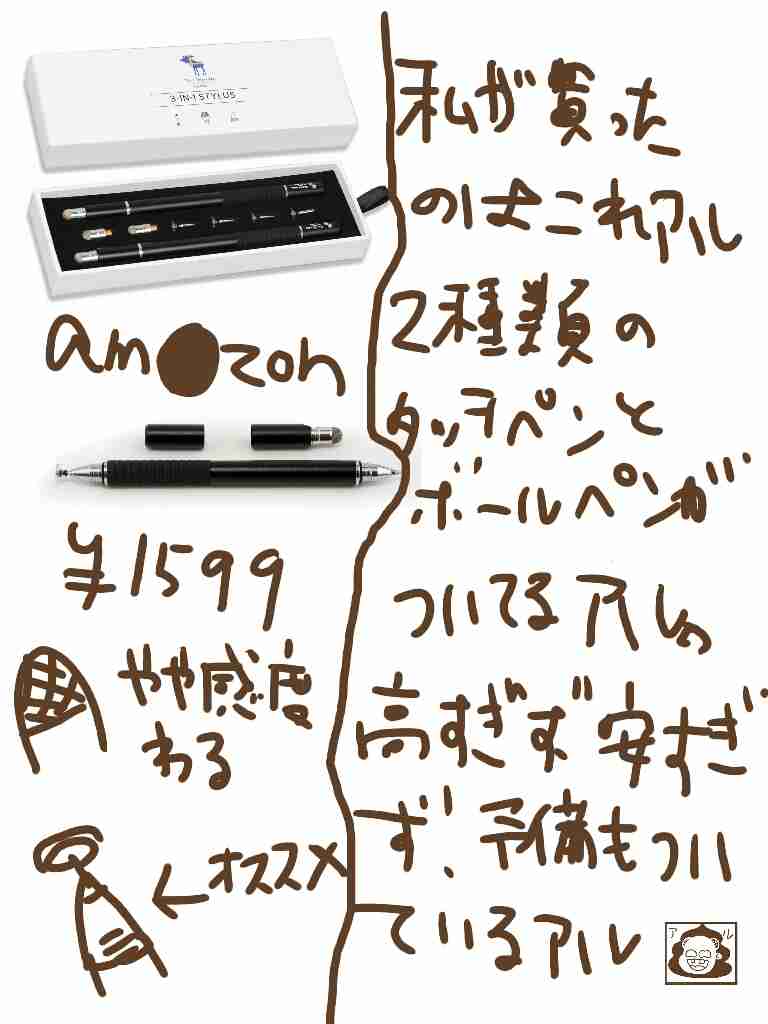 3-IN-1 STYLUS
am●zon
¥1599
やや感度
わる
←オススメ
私が買った
のはこれアル
2種類の
タッチペンと
ボールペンが
ついてるアルの
高すぎず安すぎ
ず、予備もつい
ているアル
アル